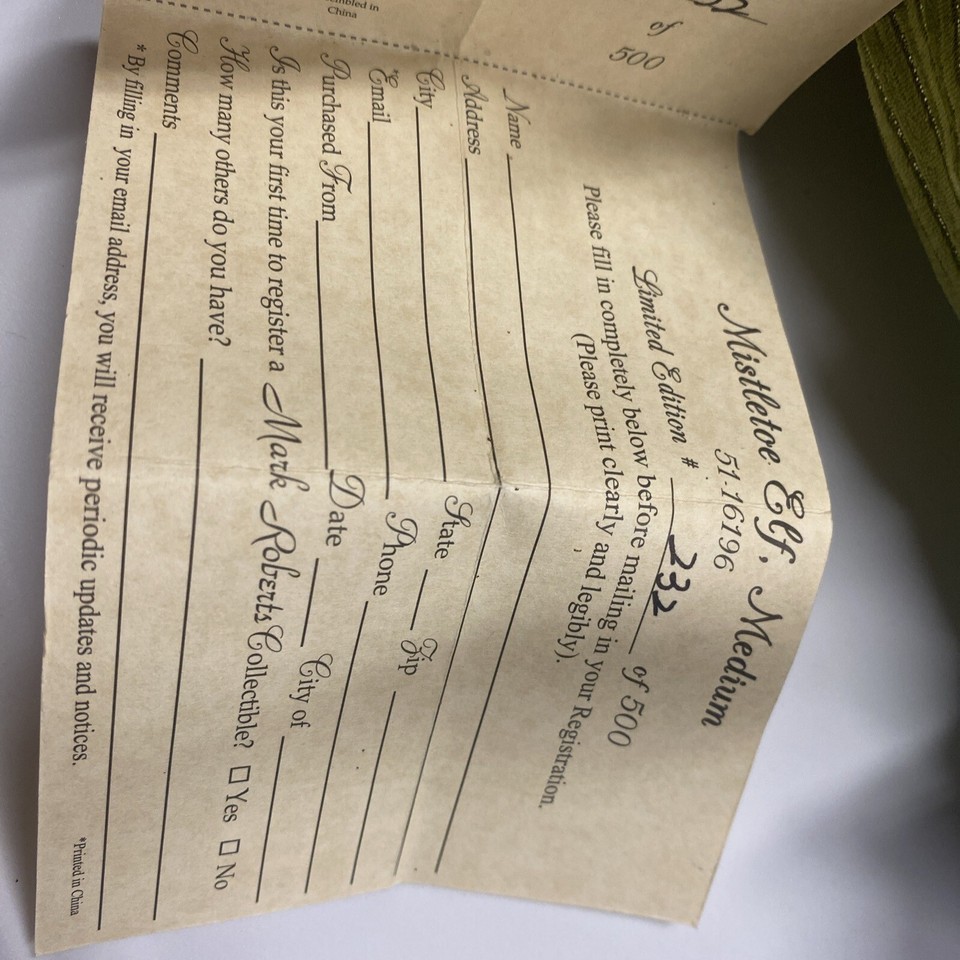 of
500
China
Mistletoe Elf, Medium
51-16196
Limited Edition # 232 of 500
Please fill in completely below before mailing in your Registration.
(Please print clearly and legibly).
Name
Address
City State Zip
Email Phone
Purchased From Date City of
Is this your first time to register a Mark Roberts Collectible? □ Yes □ No
How many others do you have?
Comments
* By filling in your email address, you will receive periodic updates and notices.
*Printed in China